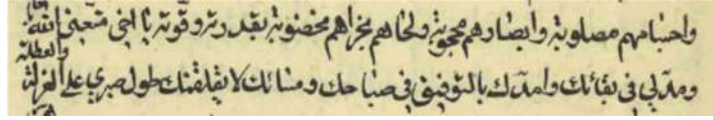 واجسامهم مصلوبة وابصارهم محجوبة ولحاهم بخراهم مخضوبة بقدرته وقوته يا اخي متعني الله بك
ومد لي في بقائك وامدك بالتوفيق في صباحك ومسائك لا يقلقنك طول صبري على العزلة والعطلة